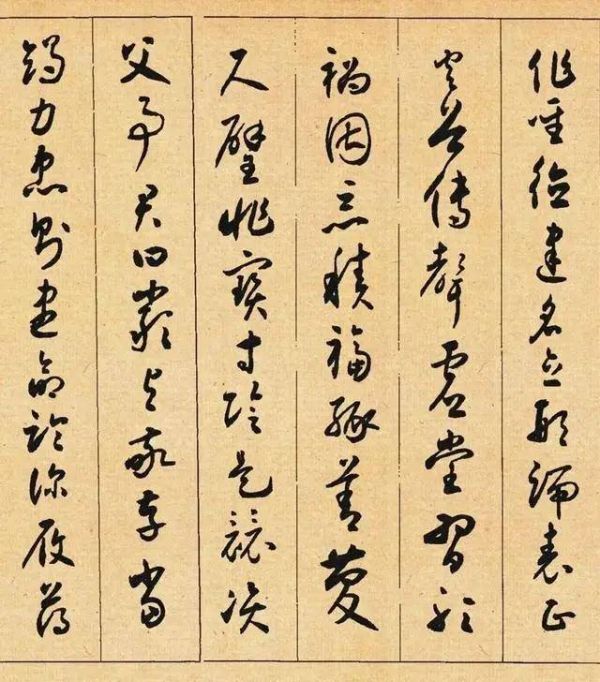 作聖德建名立形端表正
空谷傳聲虛堂習聽
禍因惡積福緣善慶
尺璧非寶寸陰是競資
父事君曰嚴與敬孝當
竭力忠則盡命臨深履薄